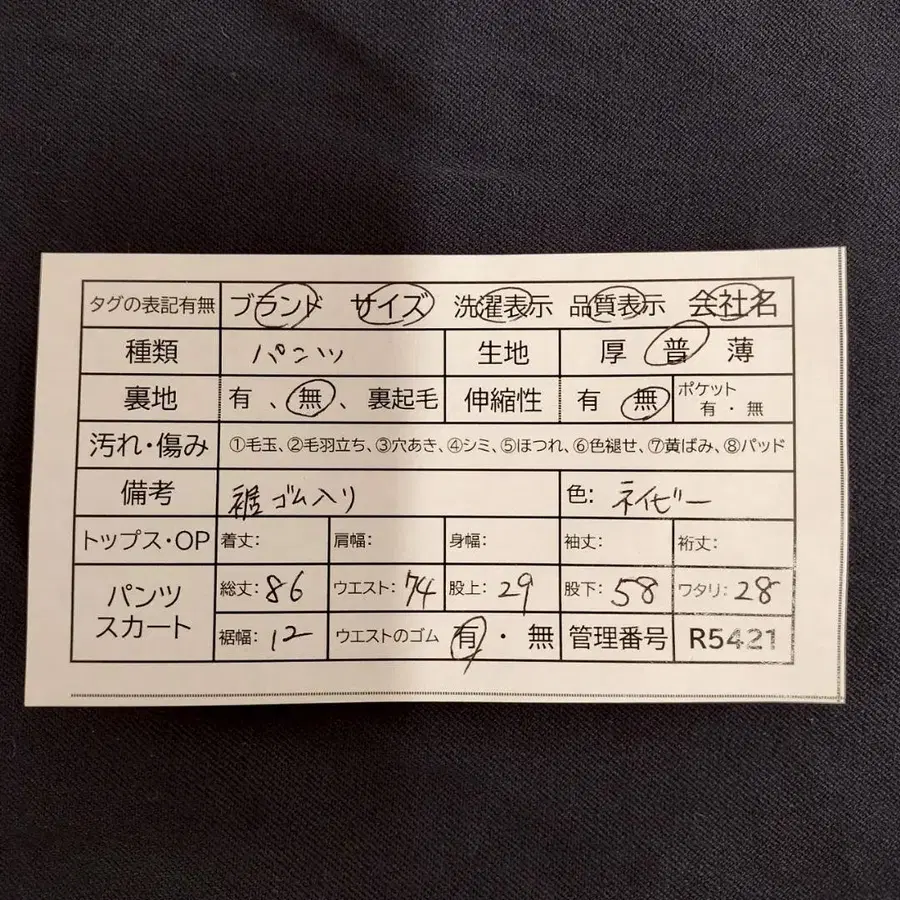 タグの表記有無 ブランド サイズ 洗濯表示 品質表示 会社名
種類 パンツ 生地 厚 普 薄
裏地 有 、無、 裏起毛 伸縮性 有 無 ポケット 有・無
汚れ・傷み ①毛玉、②毛羽立ち、③穴あき、④シミ、⑤ほつれ、⑥色褪せ、⑦黄ばみ、⑧パッド
備考 裾ゴム入り 色: ネイビー
トップス・OP 着丈: 肩幅: 身幅: 袖丈: 裄丈:
パンツ スカート 総丈: 86 ウエスト: 74 股上: 29 股下: 58 ワタリ: 28
裾幅: 12 ウエストのゴム 有・無 管理番号 R5421